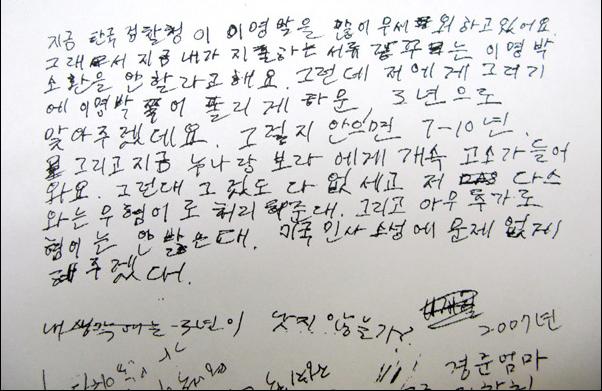 지금 한국 검찰청이 이명박을 많이 무세워하고 있어요.
그래서 지금 내가 지출하는 서류 는 이명박
소환을 안할라고 해요. 그런데 저에게 그러기
에 이명박 풀리게 하문, 3년으로
맞아주겠데요. 그럴지 안으면 7-10년.
그리고 지금 누나랑 보라에게 개속 고소가 들어
와요. 그런대 그것도 다 없세고 저 다스
와는 무협이로 처리 준대. 그리고 아무 추가로
협이는 안 받는대. 미국 민사 소송에 문제 없게
해주겠대.
내 생각에는 3년이 낫지 않을가?
2007년
경준엄마